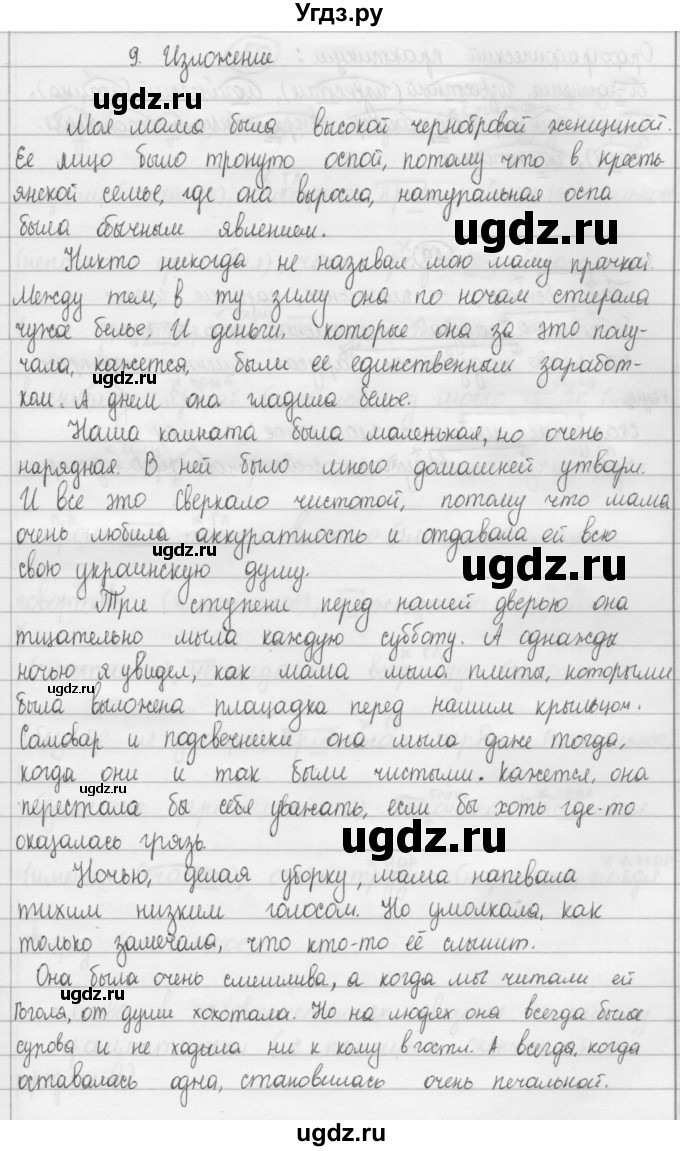 Угдз.ру
9. Изложение
ugdz.ru
Моя мама была высокой чернобровой женщиной.
Ее лицо было тронуто оспой, потому что в кресть
янской семье, где она выросла, натуральная оспа
была обычным явлением.
ugdz.ru
Никто никогда не называл мою маму прачкой.
Между тем, в ту зиму она по ночам стирала
чужое белье. И деньги, которые она за это полу-
чала, кажется, были ее единственным заработ-
ugdz.ru
ком. А днем она гладила белье.
Наша комната была маленькая, но очень
нарядная. В ней было много домашней утвари.
И все это сверкало чистотой, потому что мама
очень любила аккуратность и отдавала ей всю
ugdz.ru
свою украинскую душу.
ugdz.ru
Три ступени перед нашей дверью она
тщательно мыла каждую субботу. А однажды
ночью я увидел, как мама мыла плиты, которыми
ugdz.ru
была выложена площадка перед нашим крыльцом.
Самовар и подсвечники она мыла даже тогда,
когда они и так были чистыми. Кажется, она
перестала бы себя уважать, если бы хоть где-то
оказалась грязь.
ugdz.ru
Ночью, делая уборку, мама напевала
тихим низким голосом. Но умолкала, как
только замечала, что кто-то её слышит.
Она была очень смешлива, а когда мы читали ей
ugdz.ru
Гоголя, от души хохотала. Но на людях она всегда была
сурова и не ходила ни к кому в гости. А всегда, когда
оставалась одна, становилась очень печальной.
ugdz.ru